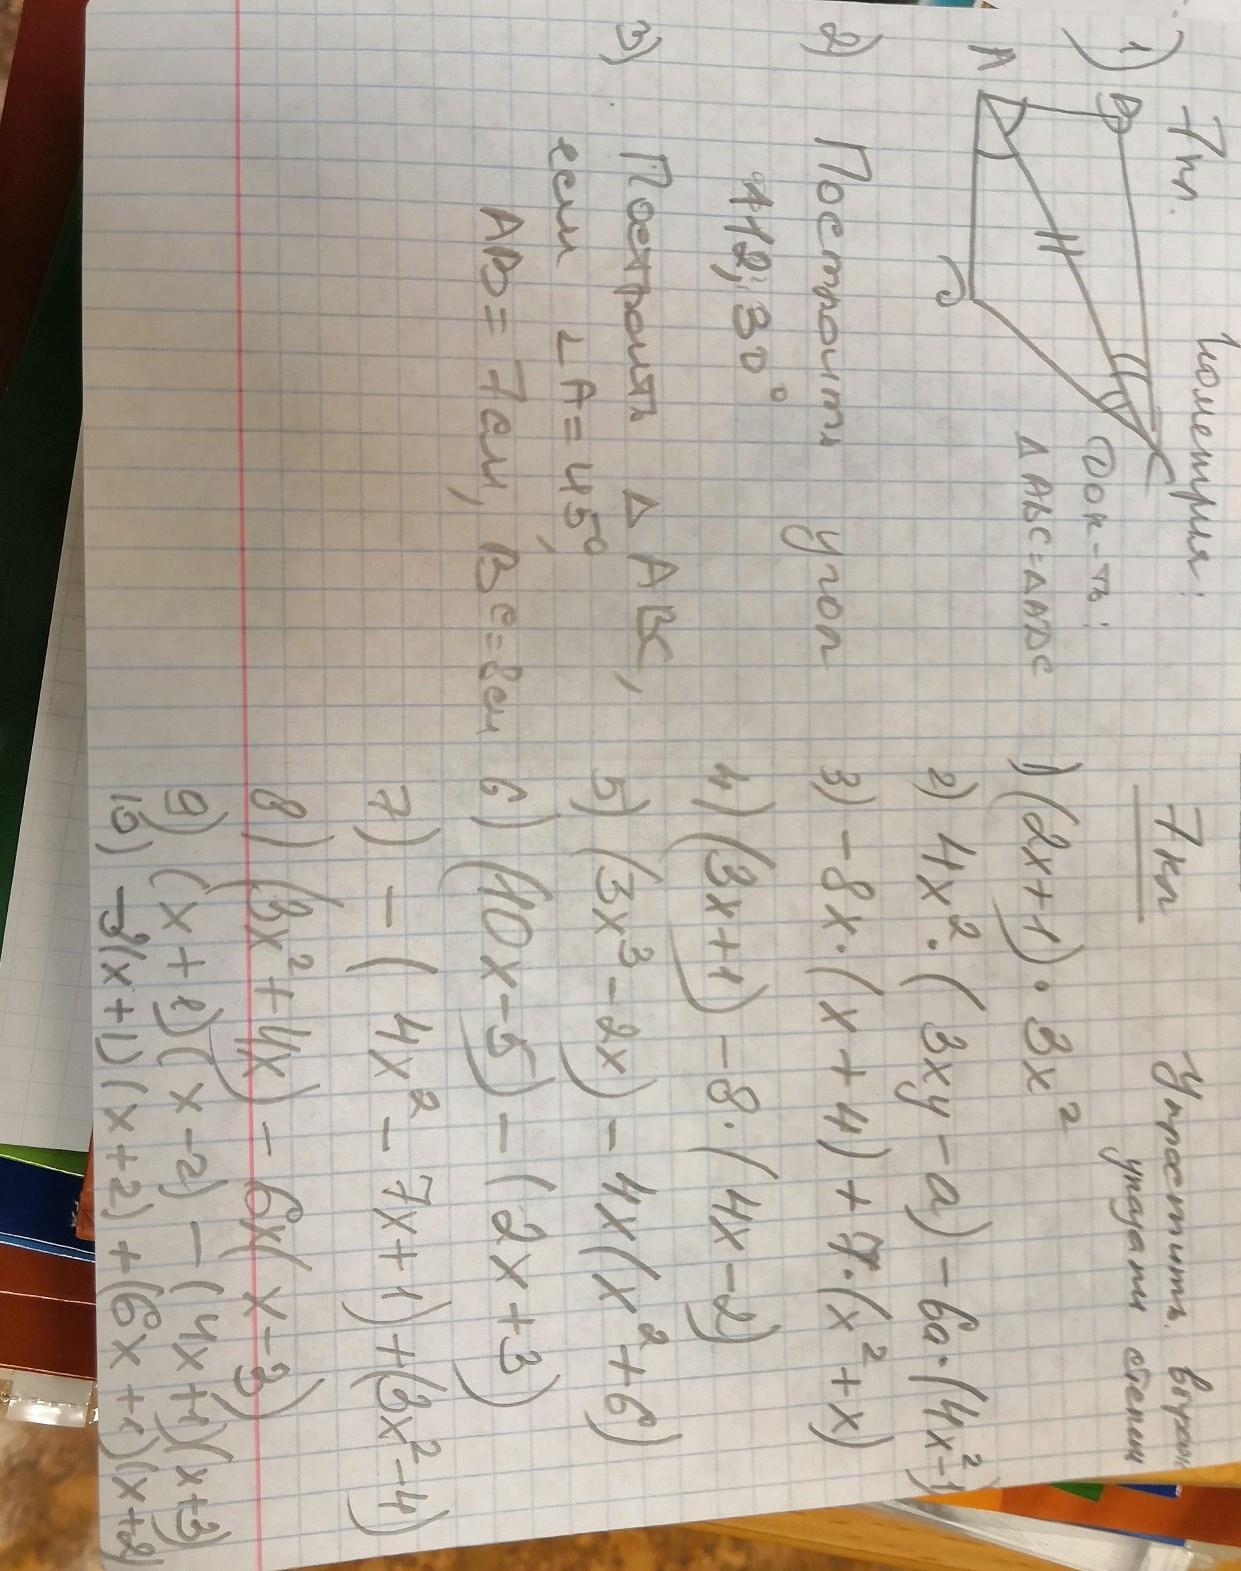 7 кл. Геометрия:
1)
B
C
A
D
Док-ть:
Δ ABC = Δ ADC
2) Построить угол
112,30°
3) Построить Δ ABC,
если ∠A = 45°,
AB = 7см, BC = 8см
7 кл Упростить
указать степень
1) (2x+1)·3x²
2) 4x²·(3xy-a)-6a·(4x²-1)
3) -8x·(x+4)+7·(x²+x)
4) (3x+1)-8·(4x-2)
5) (3x³-2x)-4x(x²+6)
6) (10x-5)-(2x+3)
7) -(4x²-7x+1)+(3x²-4)
8) (3x²+4x)-6x(x-3)
9) (x+1)(x-2)-(4x+1)(x+3)
10) -3(x+1)(x+2)+(6x+1)(x+2)